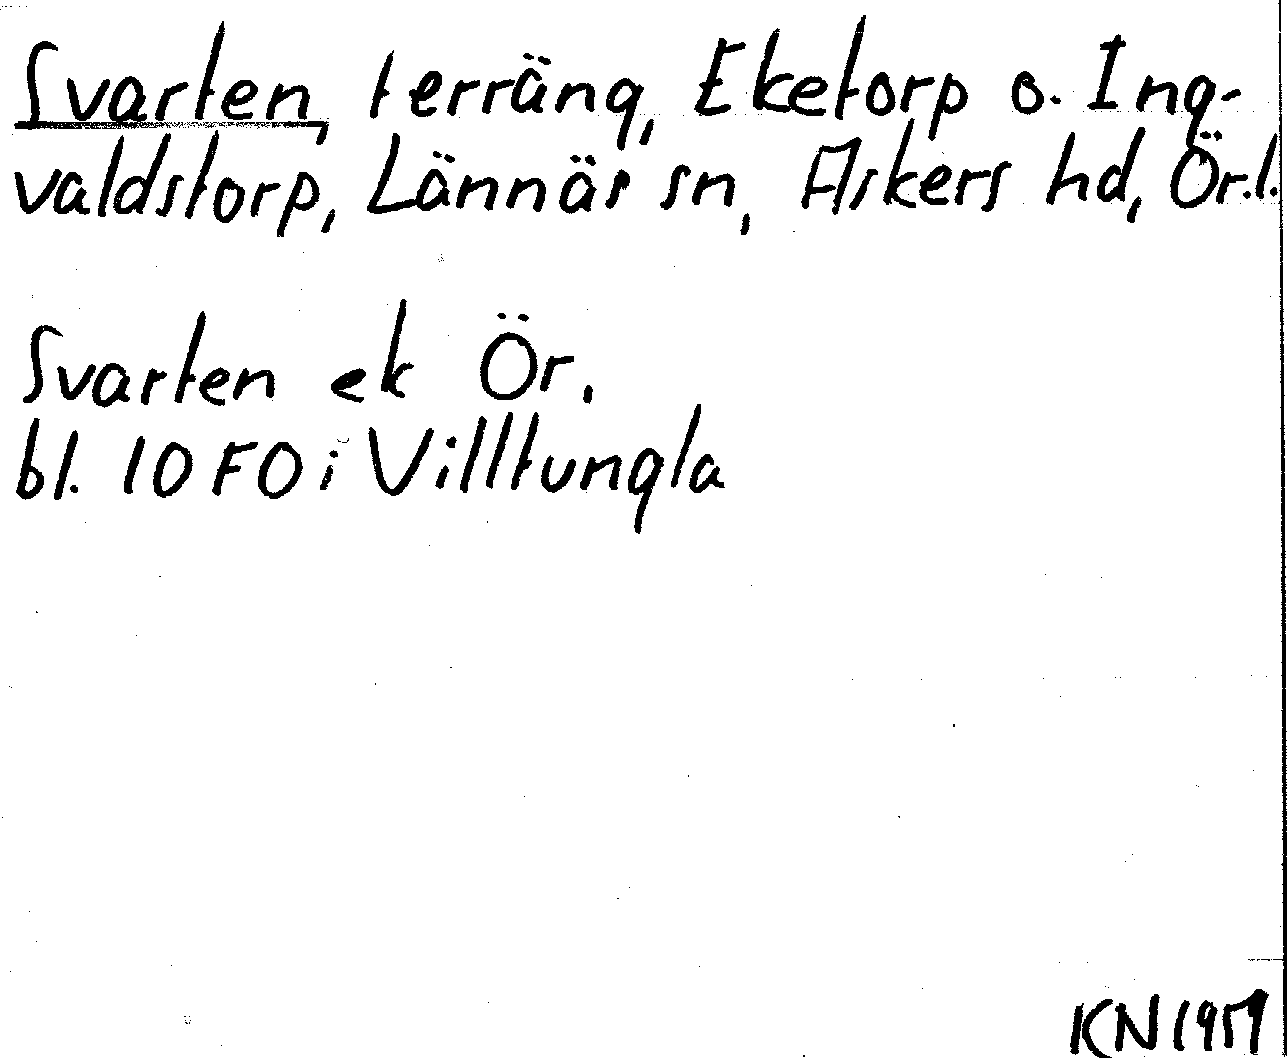 Svarten, terräng, Eketorp o. Ing-
valdstorp, Lännäs sn, Askers hd, Ör.l.
Svarten ek Ör.
bl. 10 F0 i Villtungla
KN